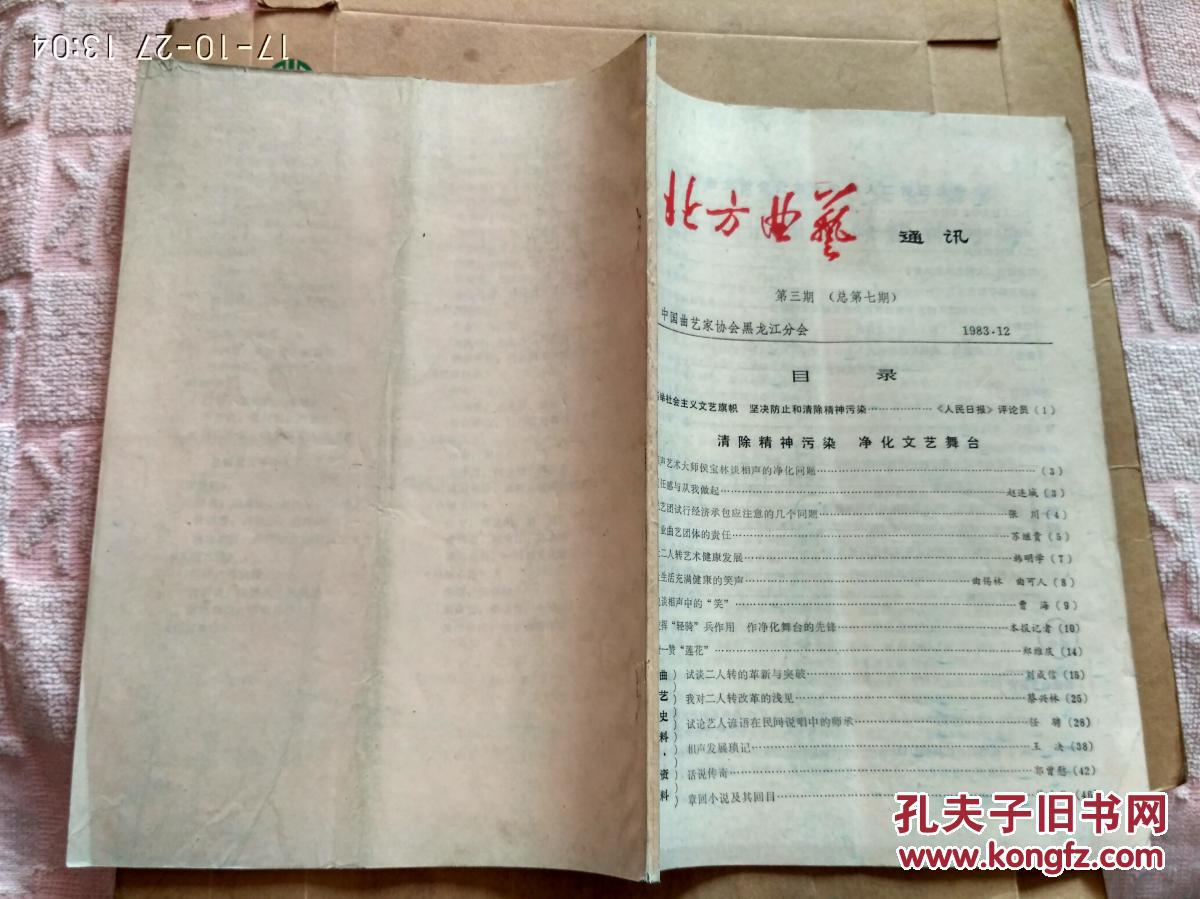 17-10-27 13:04
北方曲艺 通讯
第三期 (总第七期)
中国曲艺家协会黑龙江分会 1983.12
目 录
社会主义文艺旗帜 坚决防止和清除精神污染 …………《人民日报》评论员(1)
清除精神污染 净化文艺舞台
声艺术大师侯宝林谈相声的净化问题……………………(3)
任感与从我做起……………………赵连城(3)
艺团试行经济承包应注意的几个问题……………………张 川(4)
业曲艺团体的责任……………………苏继贵(5)
二人转艺术健康发展……………………韩明学(7)
生活充满健康的笑声……………………曲锡林 曲可人(8)
谈相声中的“笑”……………………曹 海(9)
挥“轻骑”兵作用 作净化舞台的先锋……………………本报记者(10)
一赞“莲花”……………………郑维庆(14)
曲艺史料·资料
试谈二人转的革新与突破……………………刘成信(15)
我对二人转改革的浅见……………………蔡兴林(25)
试论艺人谚语在民间说唱中的师承……………………任 骋(26)
相声发展琐记……………………王 决(38)
话说传奇……………………郭曾愁(42)
章回小说及其回目……………………(46
孔夫子旧书网
www.kongfz.com